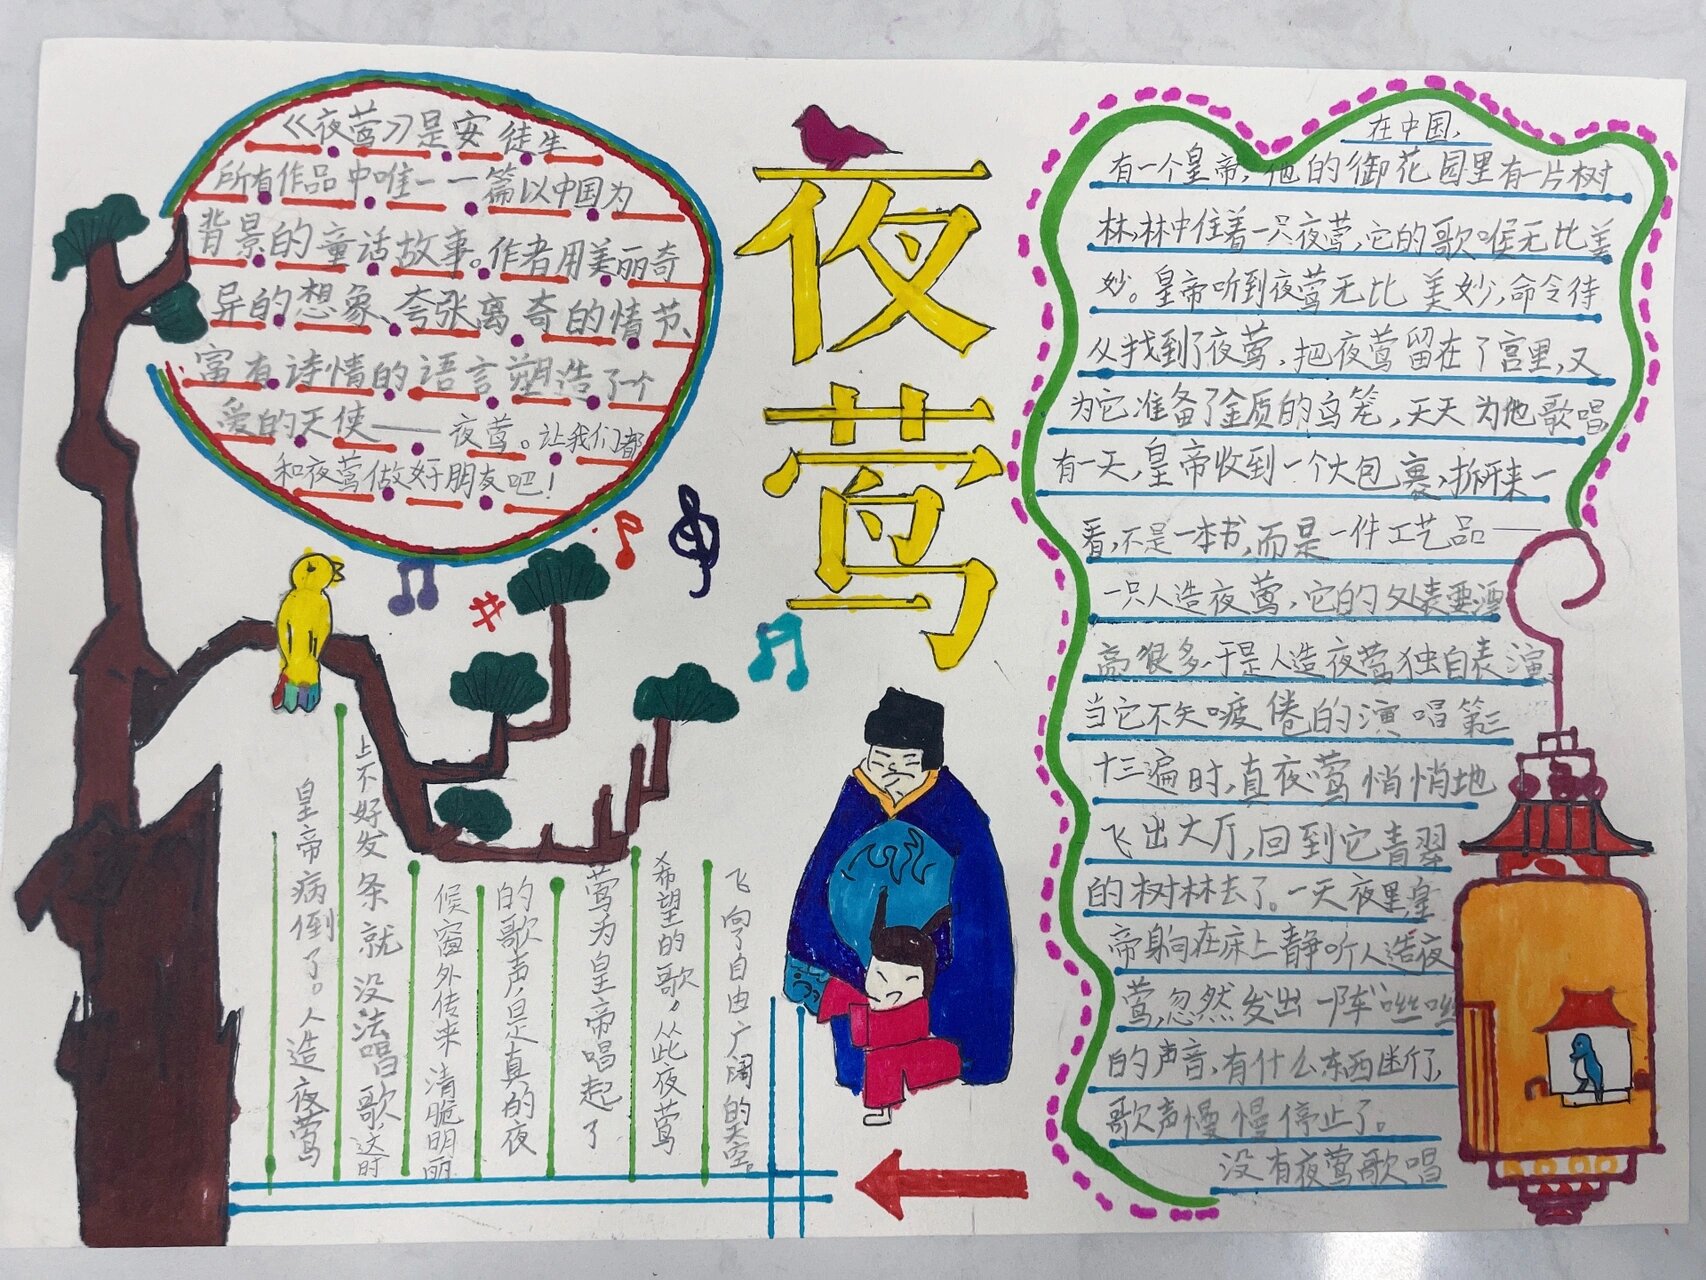 夜莺
《夜莺》是安徒生
所有作品中唯一一篇以中国为
背景的童话故事。作者用美丽奇
异的想象、夸张离奇的情节、
富有诗情的语言塑造了一个
爱的天使——夜莺。让我们都
和夜莺做好朋友吧!
在中国,
有一个皇帝,他的御花园里有一片树
林,林中住着一只夜莺,它的歌喉无比美
妙。皇帝听到夜莺无比美妙,命令侍
从找到了夜莺,把夜莺留在了宫里,又
为它准备了金质的鸟笼,天天为他歌唱
有一天,皇帝收到一个大包裹,拆开来一
看,不是一本书,而是一件工艺品——
一只人造夜莺,它的外表要漂
亮很多,于是人造夜莺独自表演
当它不知疲倦的演唱第三
十三遍时,真夜莺悄悄地
飞出大厅,回到它青翠
的树林去了。一天夜里,皇
帝躺在床上静听人造夜
莺,忽然发出一阵“咝咝
的声音,有什么东西断了,
歌声慢慢停止了。
没有夜莺歌唱
皇帝病倒了。人造夜莺
上不好发条就没法唱歌,这时
候窗外传来清脆明丽
的歌声,是真的夜
莺为皇帝唱起了
希望的歌,从此夜莺
飞向了自由广阔的天空。